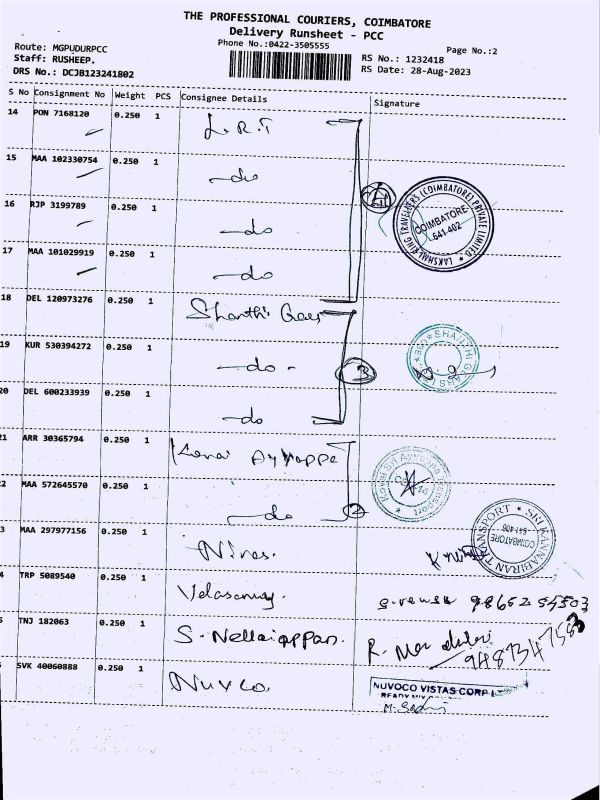 THE PROFESSIONAL COURIERS, COIMBATORE
Delivery Runsheet - PCC
Phone No.:0422-3505555
Page No.:2
Route: MGPUDURPCC
Staff: RUSHEEP.
DRS No.: DCJB123241802
RS No.: 1232418
RS Date: 28-Aug-2023
S No Consignment No Weight PCS Consignee Details Signature
14 PON 7168120 0.250 1 L.R.T
15 MAA 102330754 0.250 1 -do
16 RJP 3199789 0.250 1 -do
17 MAA 101029919 0.250 1 -do
4
LAKSHMI RING TRAVELLERS (COIMBATORE) PRIVATE LIMITED
COIMBATORE
641-402
18 DEL 120973276 0.250 1 Shanthi Gears
19 KUR 530394272 0.250 1 -do-
20 DEL 600233939 0.250 1 -do
3
21 ARR 30365794 0.250 1 Ayyappa
2 MAA 572645570 0.250 1 -do
2
3 MAA 297977156 0.250 1
SRI KANNABIRAN TRANSPORT
COIMBATORE
4 TRP 5089540 0.250 1 Velasamy.
5 TNJ 182063 0.250 1 S. Nellaiappan. R.
9487347583
SVK 40060888 0.250 1 Nuvco
NUVOCO VISTAS CORP L